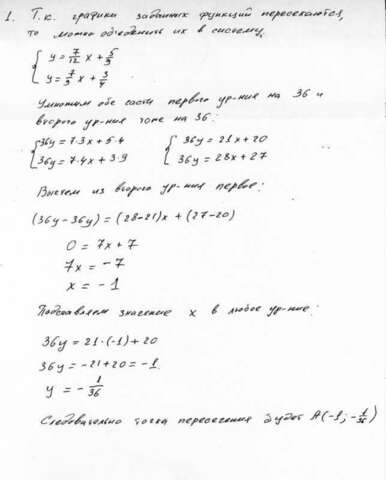 1. Т.к. графики заданных функций пересекаются,
то можно объединить их в систему
{ y = 7/12 x + 5/9
{ y = 7/9 x + 3/4
Умножим обе части первого ур-ния на 36 и
второго ур-ния тоже на 36:
{ 36y = 7·3x + 5·4 { 36y = 21x + 20
{ 36y = 7·4x + 3·9 { 36y = 28x + 27
Вычтем из второго ур-ния первое:
(36y - 36y) = (28-21)x + (27-20)
0 = 7x + 7
7x = -7
x = -1
Подставляем значение x в любое ур-ние:
36y = 21·(-1) + 20
36y = -21 + 20 = -1.
y = - 1/36
Следовательно точка пересечения будет A(-1; - 1/36)